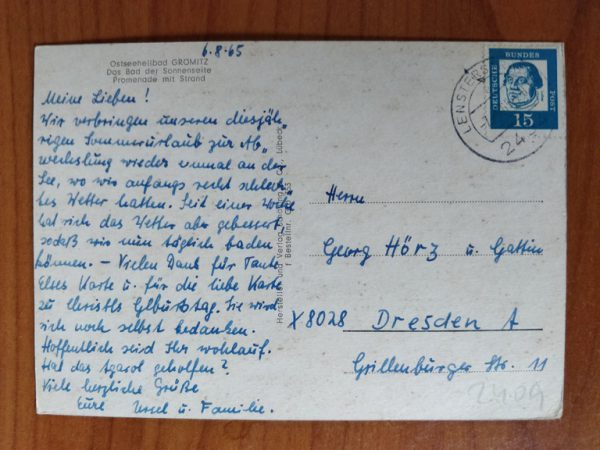 6.8.65
Ostseeheilbad GRÖMITZ
Das Bad der Sonnenseite
Promenade mit Strand
Meine Lieben!
Wir verbringen unseren diesjäh-
rigen Sommerurlaub zur Ab-
wechslung wieder einmal an der
See, wo wir anfangs recht schlech-
tes Wetter hatten. Seit einer Woche
hat sich das Wetter aber gebessert,
sodaß wir nun täglich baden
können. – Vielen Dank für Tante
Elses Karte u. für die liebe Karte
zu Christls Geburtstag. Sie wird
sich noch selbst bedanken.
Hoffentlich seid Ihr wohlauf.
Hat das Agarol geholfen?
Viele herzliche Grüße
Eure Ursel u. Familie.
Hersteller und Verlag Lübeck
Bestellnr.
DEUTSCHE BUNDES POST
15
LENST
24
Herrn
Georg Hörz u. Gattin
X8028 Dresden A
Grillenburger Str. 11
24.09